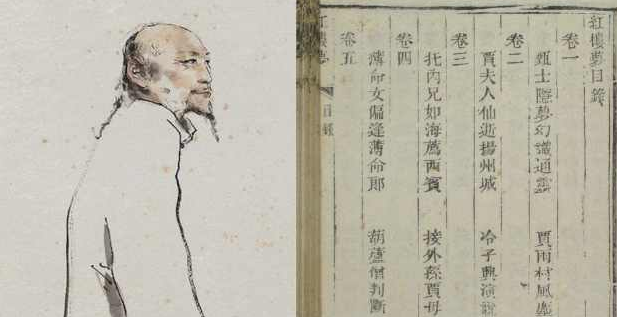 紅樓夢目錄
卷一
甄士隱夢幻識通靈 賈雨村風塵
卷二
賈夫人仙逝揚州城 冷子興演說
卷三
托內兄如海薦西賓 接外孫賈母
卷四
薄命女偏逢薄命郎 葫蘆僧判斷
卷五
紅樓夢 目錄